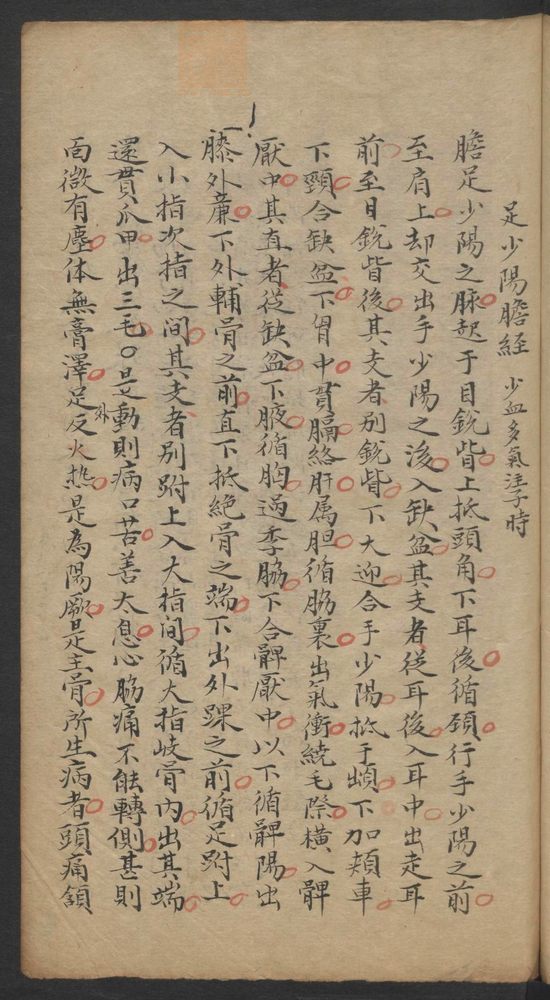 足少陽膽經 少血多氣注子時
膽足少陽之脉起于目銳眥上抵頭角下耳後循頸行手少陽之前
至肩上却交出手少陽之後入缺盆其支者從耳後入耳中出走耳
前至目銳眥後其支者別銳眥下大迎合手少陽抵于䪼下加頰車
下頸合缺盆下胷中貫膈絡肝属胆循脇裏出氣衝繞毛際橫入髀
厭中其直者從缺盆下腋循胸過季脇下合髀厭中以下循髀陽出
膝外廉下外輔骨之前直下抵絕骨之端下出外踝之前循足跗上
入小指次指之間其支者別跗上入大指間循大指岐骨內出其端
還貫爪甲出三毛〇是動則病口苦善太息心脇痛不能轉側甚則
面微有塵体無膏澤足外反火热是為陽厥是主骨所生病者頭痛頷